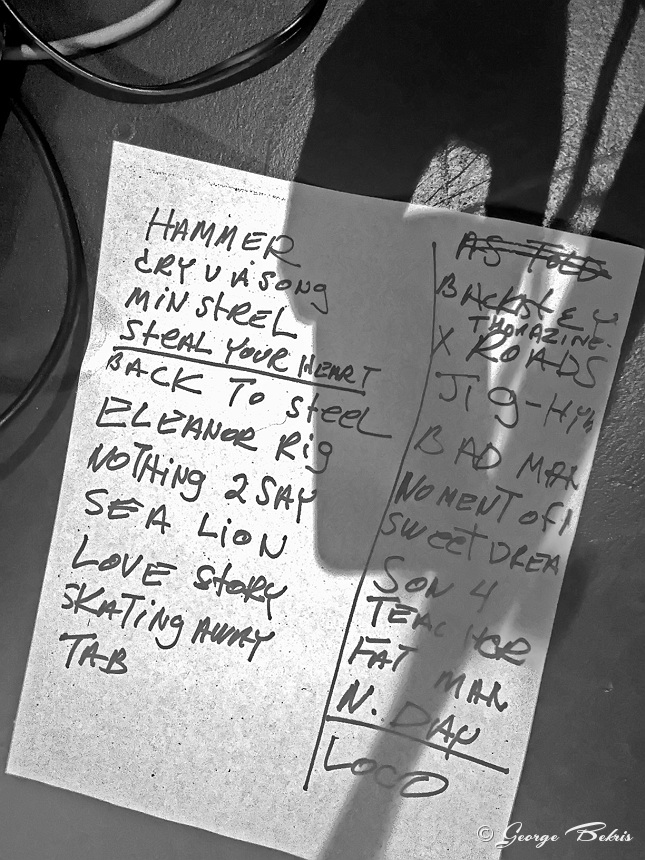 HAMMER
CRY U A SONG
MINSTREL
STEAL YOUR HEART
BACK TO STEEL
ELEANOR Rig
NOTHING 2 SAY
SEA LION
LOVE STORY
SKATING AWAY
TAB
AS TOLD
BACKST
THORAZINE.
X ROADS
JIG-
BAD MAN
MOMENT OF
SWEET DREA
SON 4
TEACHER
FAT MAN
N. DAY
LOCO
© George Bekris